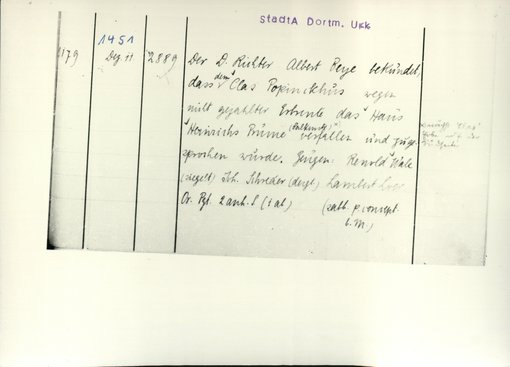 StadtA Dortm. Ukk
1179
1451
Dez. 11
2889
Der D. Richter Albert Peye bekundet,
dass dem Clas Popinckhus wegen
nicht gezahlter Erbrente das Haus
Heinrichs Prume verfallen und zuge-
sprochen wurde. Zeugen: Renold Wale
(siegelt) Joh. Schreder (desgl.) Lambert
Or. Pgt. 2 anh. S (1 ab)